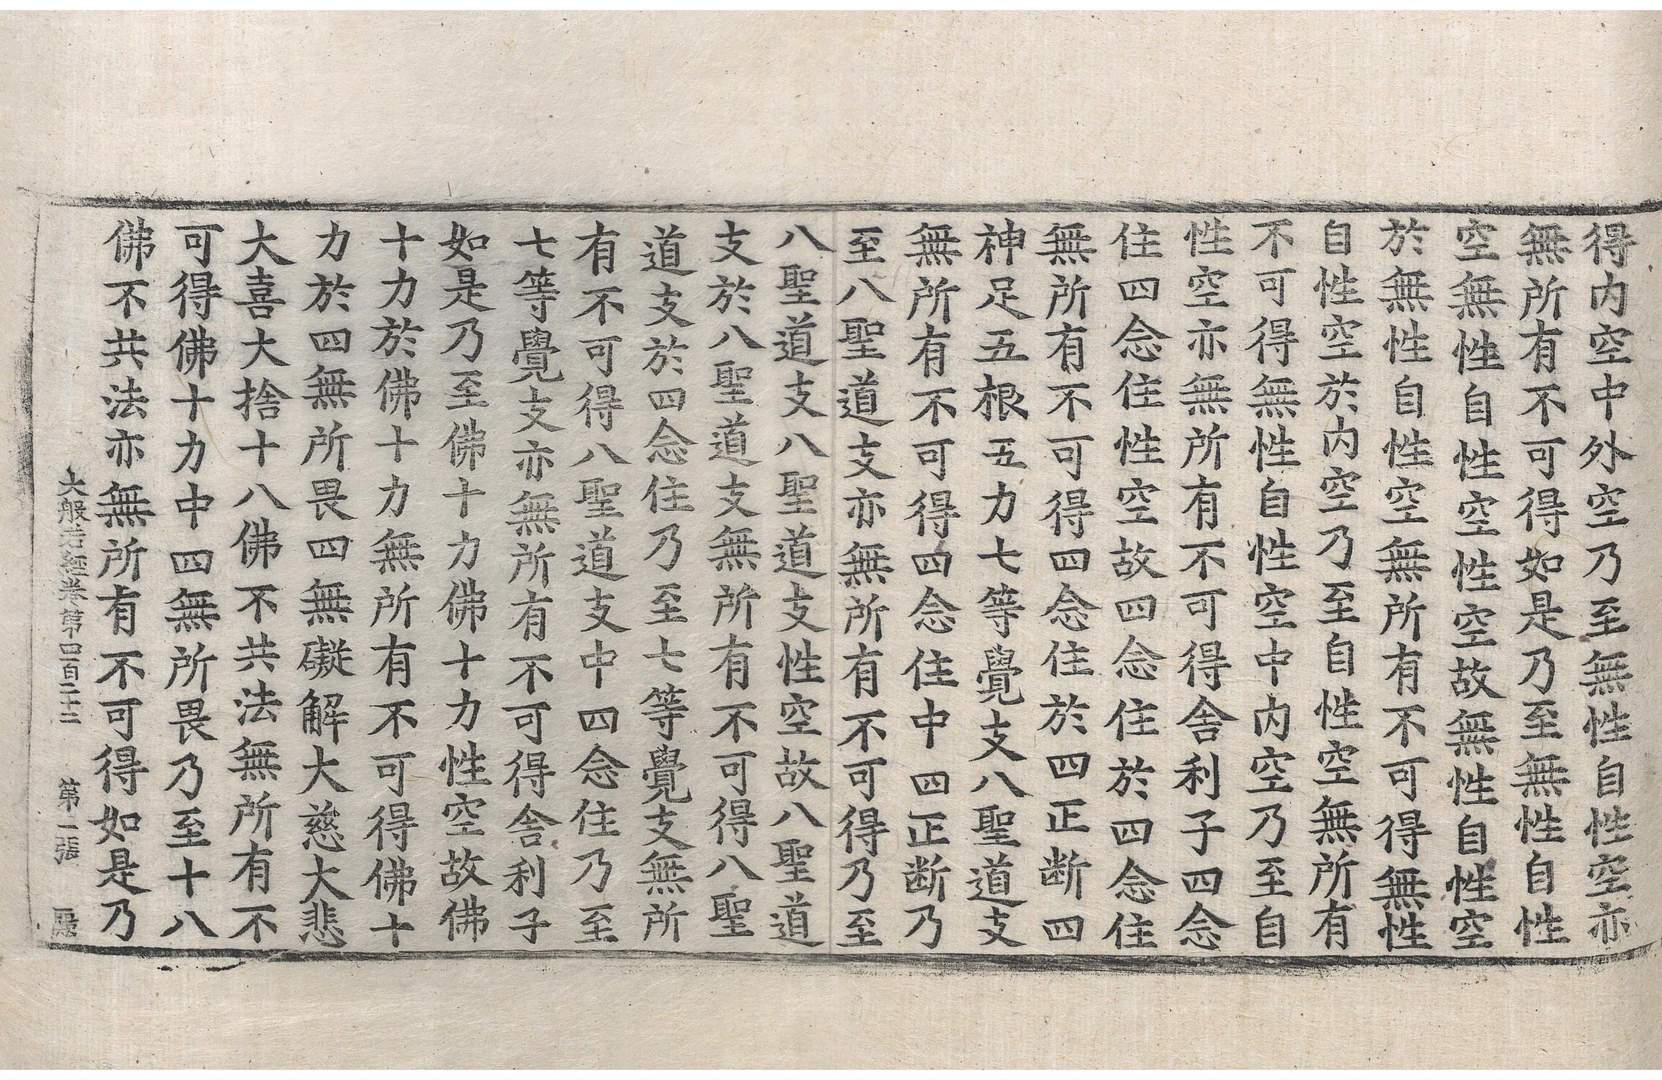 得内空中外空乃至無性自性空亦
無所有不可得如是乃至無性自性
空無性自性空性空故無性自性空
於無性自性空無所有不可得無性
自性空於内空乃至自性空無所有
不可得無性自性空中内空乃至自
性空亦無所有不可得舍利子四念
住四念住性空故四念住於四念住
無所有不可得四念住於四正断四
神足五根五力七等覺支八聖道支
無所有不可得四念住中四正断乃
至八聖道支亦無所有不可得乃至
八聖道支八聖道支性空故八聖道
支於八聖道支無所有不可得八聖
道支於四念住乃至七等覺支無所
有不可得八聖道支中四念住乃至
七等覺支亦無所有不可得舍利子
如是乃至佛十力佛十力性空故佛
十力於佛十力無所有不可得佛十
力於四無所畏四無礙解大慈大悲
大喜大捨十八佛不共法無所有不
可得佛十力中四無所畏乃至十八
佛不共法亦無所有不可得如是乃
大般若經卷第四百二十二 第二張